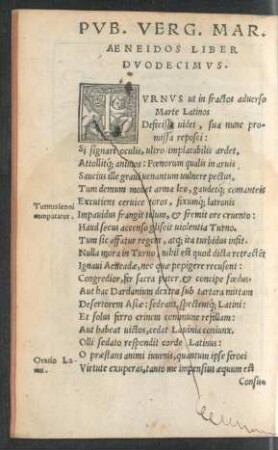 PVB. VERG. MAR.
AENEIDOS LIBER
DVODECIMVS.
TVRNVS ut infractos aduerso
Marte Latinos
Defecisse uidet, sua nunc pro-
missa reposci:
Si signari oculis, ultro implacabilis ardet,
Attollitq; animos: Pœnorum qualis in aruis
Saucius ille graui uenantum uulnere pectus,
Tum demum mouet arma leo, gaudetq; comanteis
Excutiens ceruice toros, fixumq; latronis
Turnus leoni
comparatur.
Impauidus frangit telum, & fremit ore cruento:
Haud secus accenso gliscit uiolentia Turno.
Tum sic affatur regem, atq; ita turbidus infit.
Nulla mora in Turno, nihil est quod dicta retractent
Ignaui Aeneadæ, nec quæ pepigere recusent:
Congredior, fer sacra pater, & concipe fœdus.
Aut hac Dardanium dextra sub tartara mittam
Desertorem Asiæ: sedeant, spectentq; Latini:
Et solus ferro crimen commune refellam:
Aut habeat uictos, cedat Lauinia coniunx.
Olli sedato respondit corde Latinus:
Oratio La-
tini.
O præstans animi iuuenis, quantum ipse feroci
Virtute exuperas, tanto me impensius æquum est
Consule